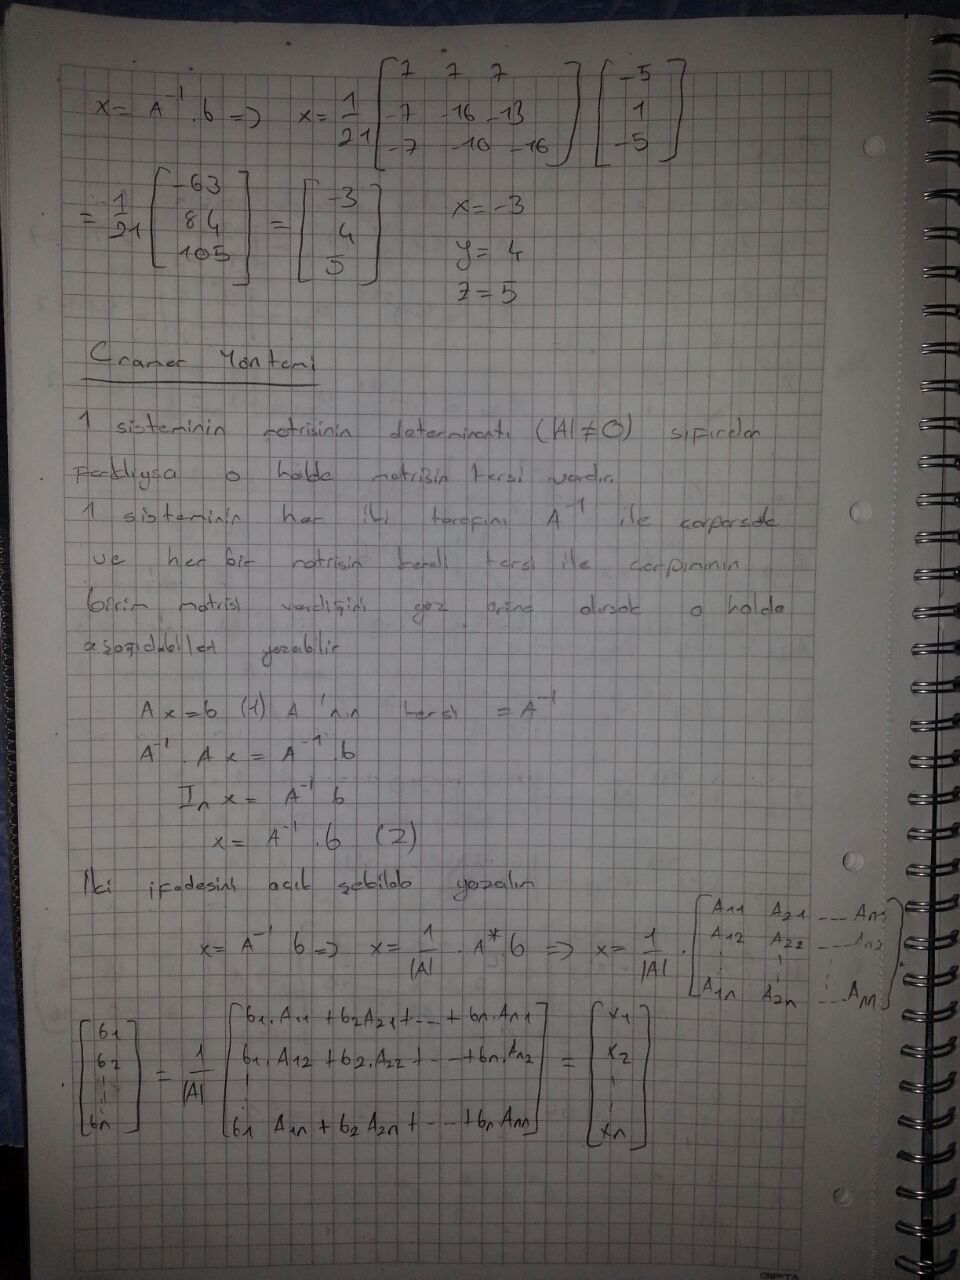 x = A⁻¹ . b => x = 1/21 [7 7 7; -7 -16 -13; -7 -10 -16] [-5; 1; -5]
= 1/21 [-63; 84; 105] = [-3; 4; 5] x = -3
y = 4
z = 5
Cramer Yöntemi
1 sisteminin matrisinin determinantı (|A| ≠ 0) sıfırdan
farklıysa o halde matrisin tersi vardır.
1 sisteminin her iki tarafını A⁻¹ ile çarparsak
ve her bir matrisin kendi tersi ile çarpımının
birim matrisi verdiğini göz önüne alırsak o halde
yazabilir
Ax = b (1) A'nın tersi = A⁻¹
A⁻¹ . A x = A⁻¹ . b
Iₙ x = A⁻¹ b
x = A⁻¹ . b (2)
İki ifadesini açık şekilde yazalım
x = A⁻¹ b => x = 1/|A| . A* . b => x = 1/|A| . [A₁₁ A₂₁ ... Aₙ₁; A₁₂ A₂₂ ... Aₙ₂; ⋮ ⋮ ⋮; A₁ₙ A₂ₙ ... Aₙₙ] .
[b₁; b₂; ⋮; bₙ] = 1/|A| [b₁.A₁₁ + b₂A₂₁ + ... + bₙ.Aₙ₁; b₁.A₁₂ + b₂.A₂₂ + ... + bₙ.Aₙ₂; ⋮; b₁ A₁ₙ + b₂ A₂ₙ + ... + bₙ Aₙₙ] = [x₁; x₂; ⋮; xₙ]